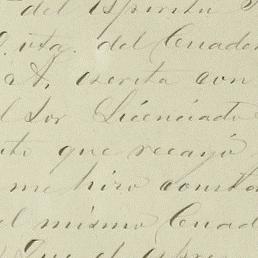 del Espiritu
vta. del Cuader
A. escrita con
l Sor Licenciado
que recayó
me hizo consta
el mismo Cuad
Que el expre